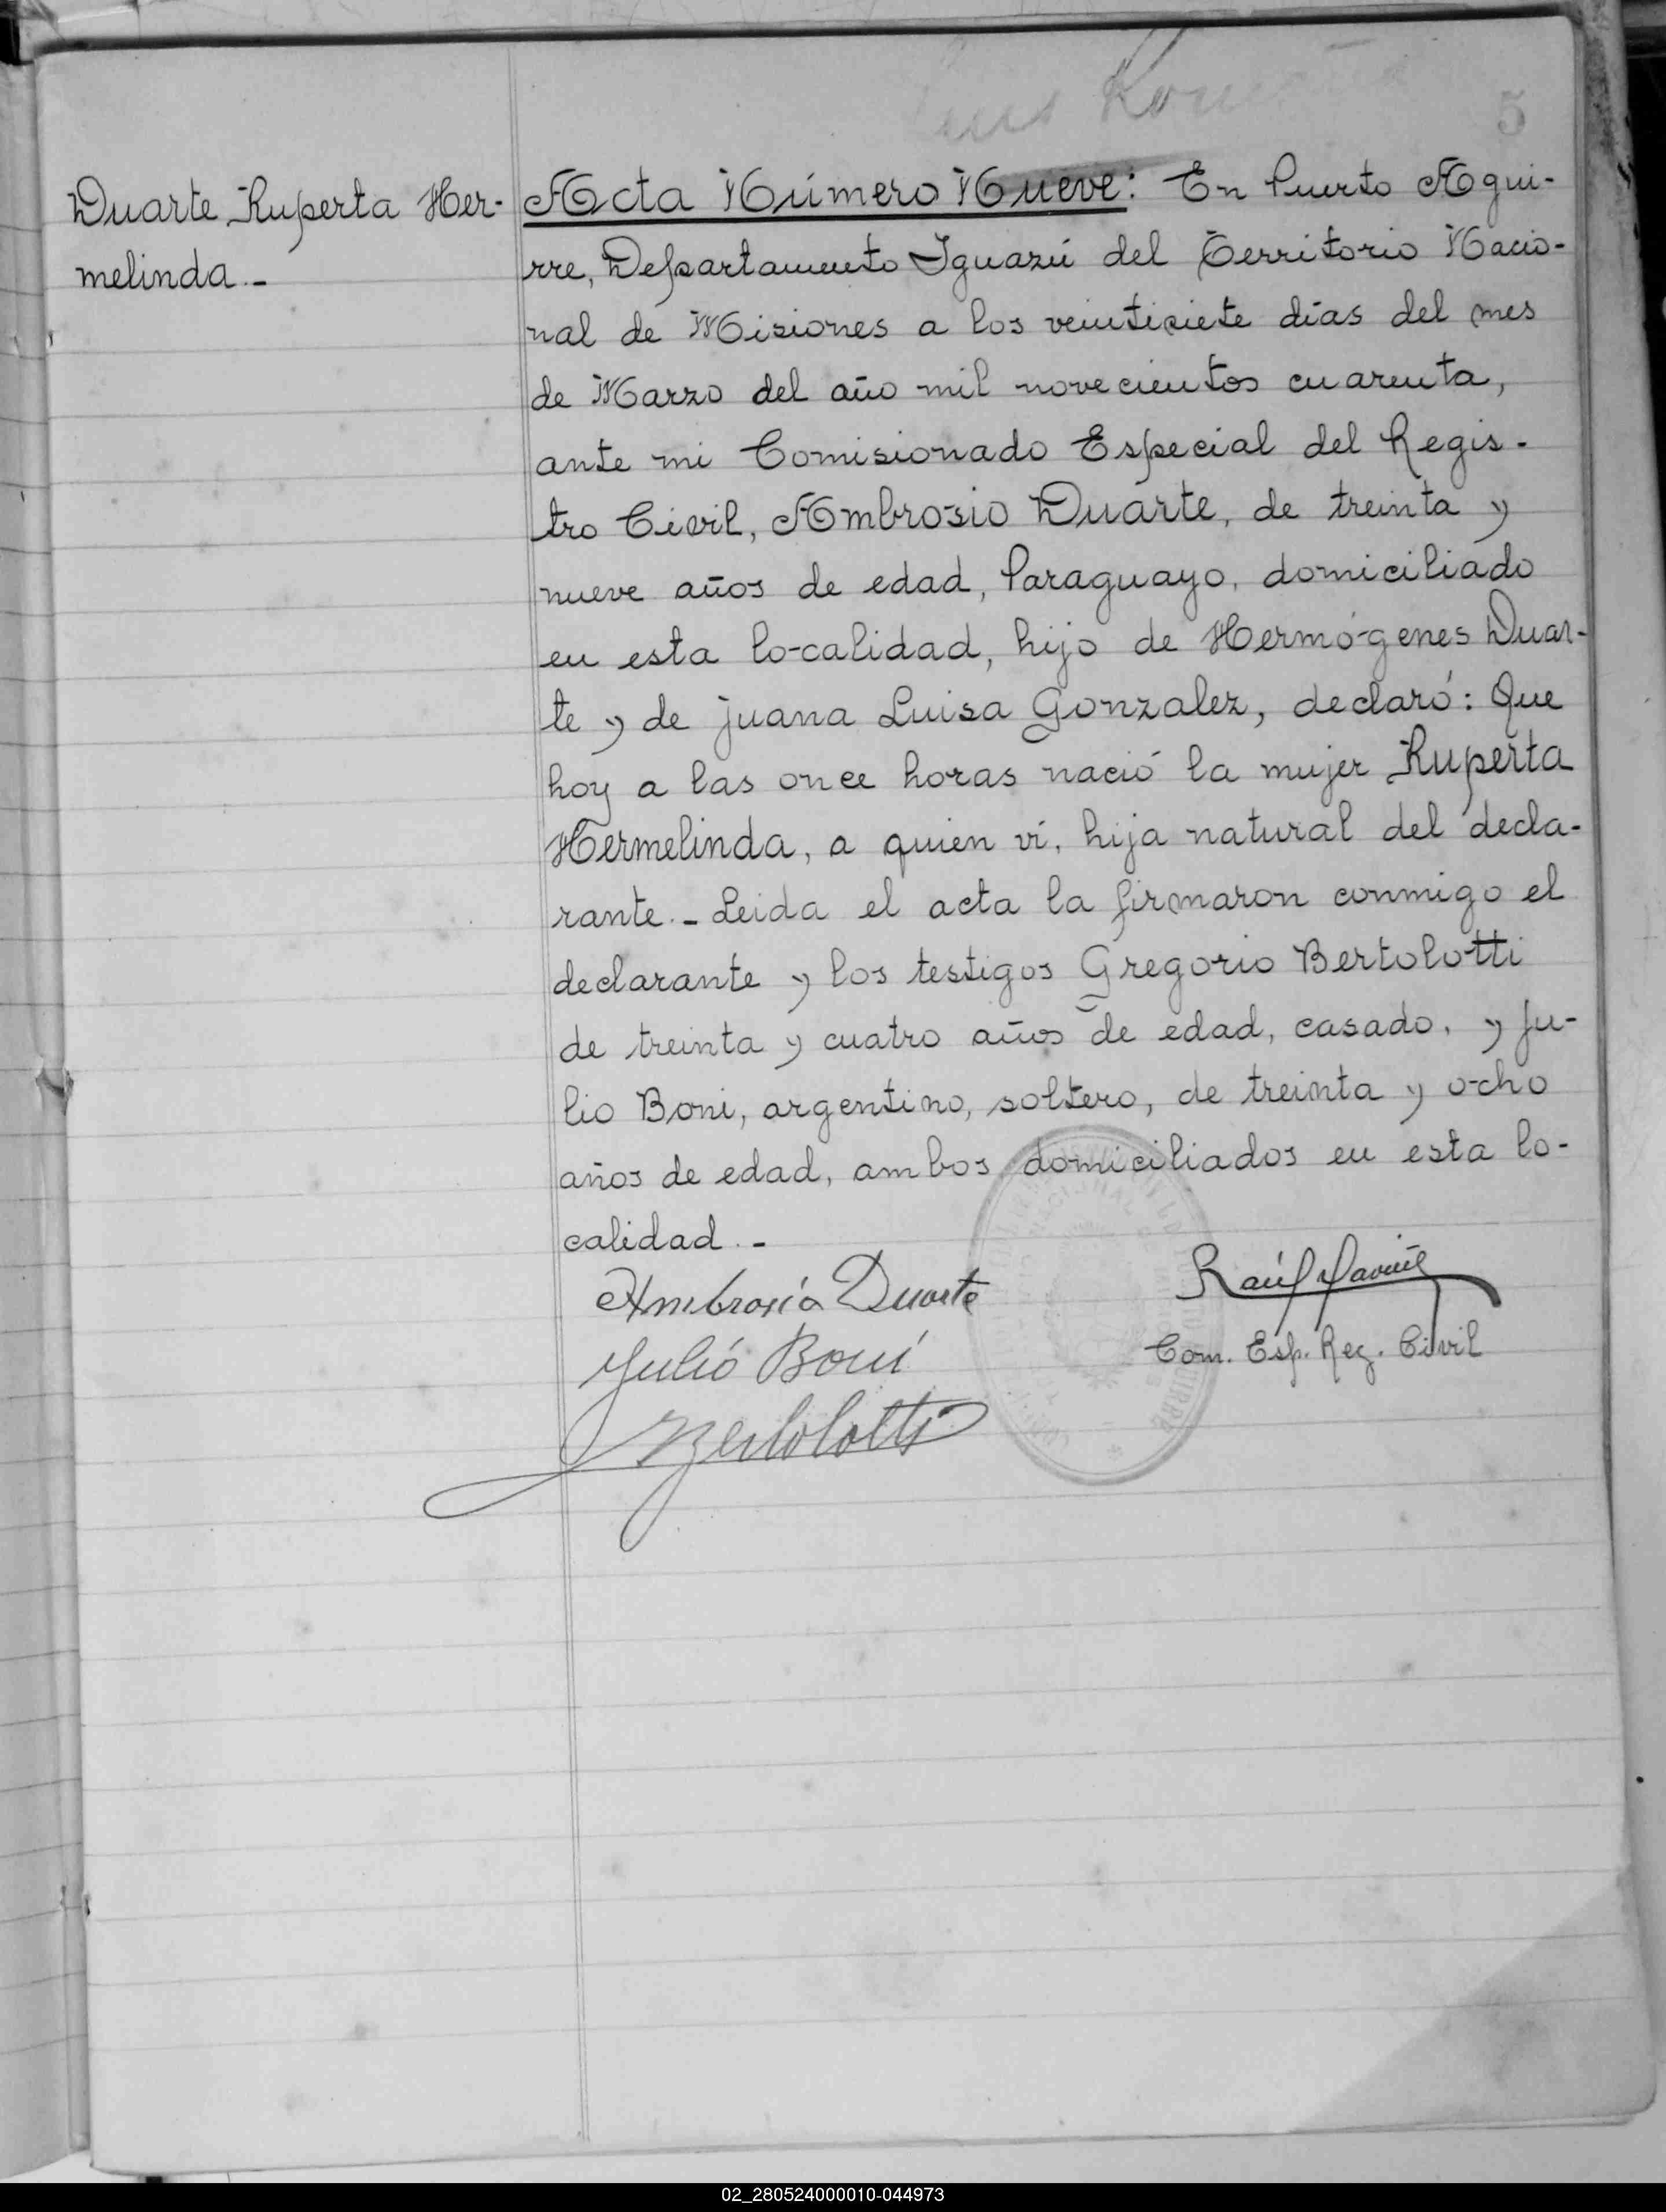 5
Duarte Ruperta Her-
melinda.-
Acta Número Nueve: En Puerto Agui-
rre, Departamento Iguazú del Territorio Nacio-
nal de Misiones a los veintisiete días del mes
de Marzo del año mil novecientos cuarenta,
ante mi Comisionado Especial del Regis-
tro Civil, Ambrosio Duarte, de treinta y
nueve años de edad, Paraguayo, domiciliado
en esta localidad, hijo de Hermógenes Duar-
te y de Juana Luisa Gonzalez, declaró: Que
hoy a las once horas nació la mujer Ruperta
Hermelinda, a quien ví, hija natural del decla-
rante.- Leida el acta la firmaron conmigo el
declarante y los testigos Gregorio Bertolotti
de treinta y cuatro años de edad, casado, y Ju-
lio Boni, argentino, soltero, de treinta y ocho
años de edad, ambos domiciliados en esta lo-
calidad.-
Ambrosio Duarte
Raúl
Julio Boni
Com. Esp. Reg. Civil
Bertolotti
02_280524000010-044973